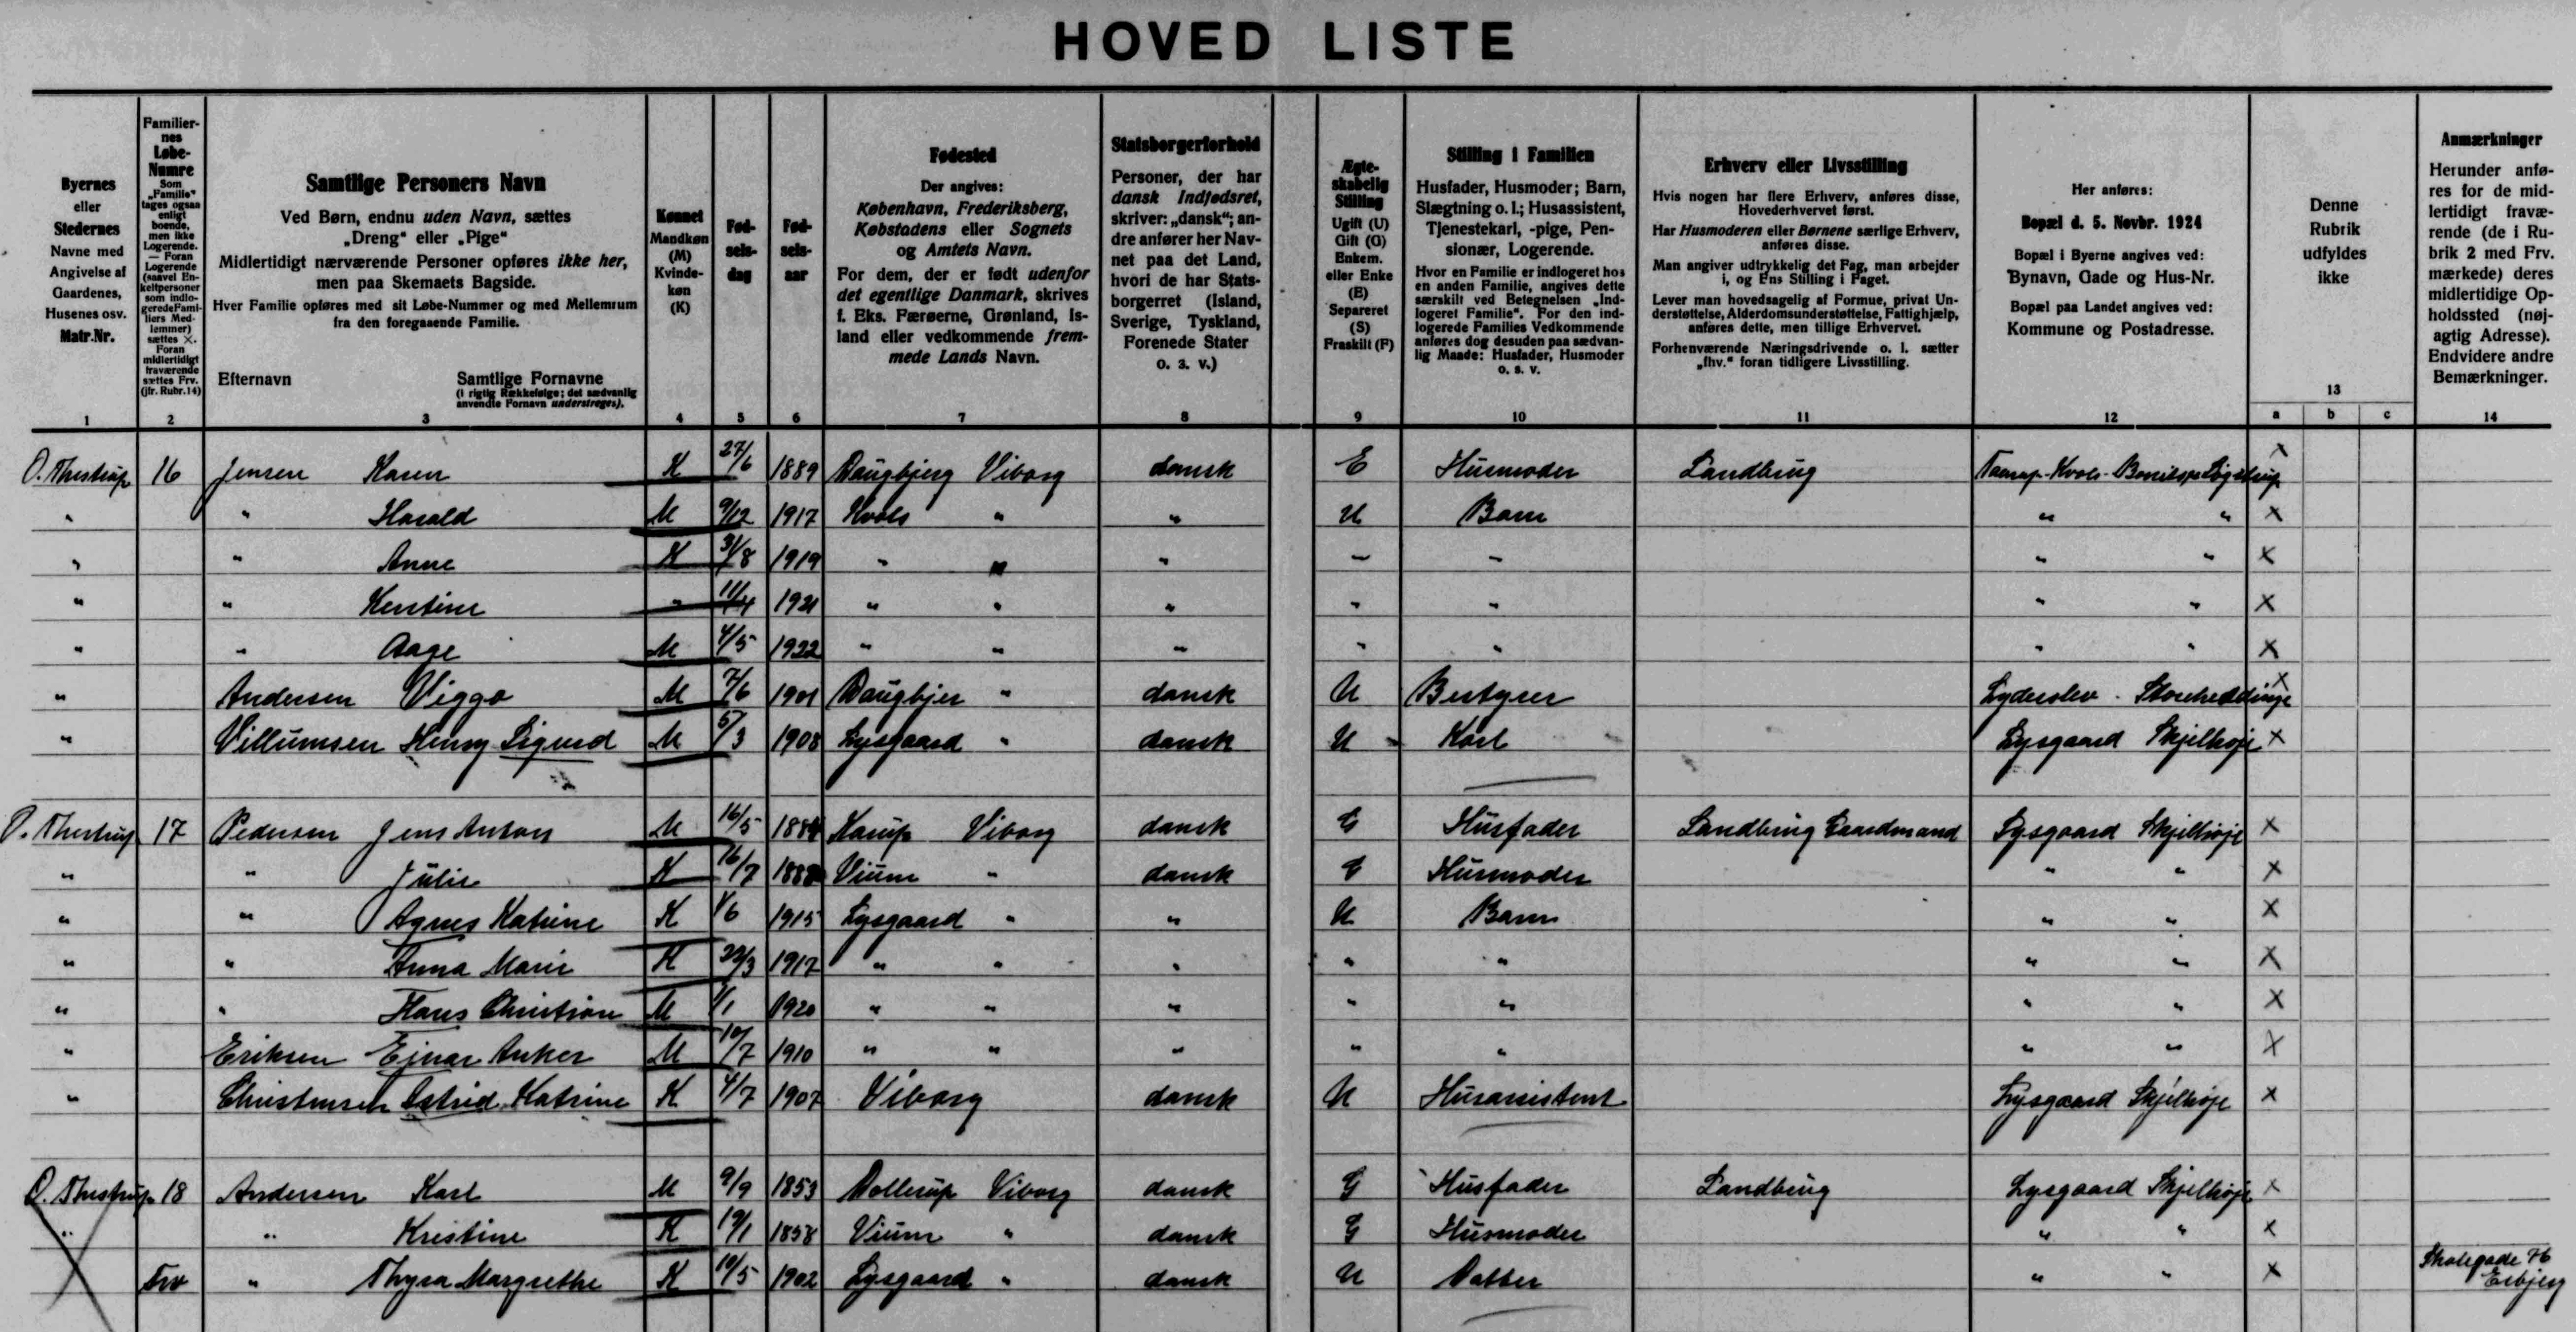 HOVED LISTE
Byernes
eller
Stedernes
Navne med
Angivelse af
Gaardenes,
Husenes osv.
Matr.Nr.
1
Familier-
nes
Løbe-
Numre
Som
„Familie"
tages ogsaa
enligt
boende,
men ikke
Logerende.
— Foran
Logerende
(saavel En-
keltpersoner
som indlo-
geredeFami-
liers Med-
lemmer)
sættes ×.
Foran
midlertidigt
fraværende
sættes Frv.
(jfr. Rubr.14)
2
Samtlige Personers Navn
Ved Børn, endnu uden Navn, sættes
„Dreng" eller „Pige"
Midlertidigt nærværende Personer opføres ikke her,
men paa Skemaets Bagside.
Hver Familie opføres med sit Løbe-Nummer og med Mellemrum
fra den foregaaende Familie.
Efternavn Samtlige Fornavne
(i rigtig Rækkefølge; det sædvanlig
anvendte Fornavn understreges).
3
Kønnet
Mandkøn
(M)
Kvinde-
køn
(K)
4
Fød-
sels-
dag
5
Fød-
sels-
aar
6
Fødested
Der angives:
København, Frederiksberg,
Købstadens eller Sognets
og Amtets Navn.
For dem, der er født udenfor
det egentlige Danmark, skrives
f. Eks. Færøerne, Grønland, Is-
land eller vedkommende frem-
mede Lands Navn.
7
Statsborgerforhold
Personer, der har
dansk Indfødsret,
skriver: „dansk"; an-
dre anfører her Nav-
net paa det Land,
hvori de har Stats-
borgerret (Island,
Sverige, Tyskland,
Forenede Stater
o. s. v.)
8
Ægte-
skabelig
Stilling
Ugift (U)
Gift (G)
Enkem.
eller Enke
(E)
Separeret
(S)
Fraskilt (F)
9
Stilling i Familien
Husfader, Husmoder; Barn,
Slægtning o. l.; Husassistent,
Tjenestekarl, -pige, Pen-
sionær, Logerende.
Hvor en Familie er indlogeret hos
en anden Familie, angives dette
særskilt ved Betegnelsen „Ind-
logeret Familie". For den ind-
logerede Families Vedkommende
anføres dog desuden paa sædvan-
lig Maade: Husfader, Husmoder
o. s. v.
10
Erhverv eller Livsstilling
Hvis nogen har flere Erhverv, anføres disse,
Hovederhvervet først.
Har Husmoderen eller Børnene særlige Erhverv,
anføres disse.
Man angiver udtrykkelig det Fag, man arbejder
i, og Ens Stilling i Faget.
Lever man hovedsagelig af Formue, privat Un-
derstøttelse, Alderdomsunderstøttelse, Fattighjælp,
anføres dette, men tillige Erhvervet.
Forhenværende Næringsdrivende o. l. sætter
„fhv." foran tidligere Livsstilling.
11
Her anføres:
Bopæl d. 5. Novbr. 1924
Bopæl i Byerne angives ved:
Bynavn, Gade og Hus-Nr.
Bopæl paa Landet angives ved:
Kommune og Postadresse.
12
Denne
Rubrik
udfyldes
ikke
13
a b c
Anmærkninger
Herunder anfø-
res for de mid-
lertidigt fravæ-
rende (de i Ru-
brik 2 med Frv.
mærkede) deres
midlertidige Op-
holdssted (nøj-
agtig Adresse).
Endvidere andre
Bemærkninger.
14
O. Thestrup 16 Jensen Karen K 27/6 1889 Daugbjerg Viborg dansk E Husmoder Landbrug Taarup-Kvols- Løgstrup x
" " Harald M 9/12 1917 Kvols " " U Barn " " x
" " Anne K 31/8 1919 " " " — — " " x
" " Kerstine " 11/4 1921 " " " " " " " x
" " Aage M 4/5 1922 " " " " " " " x
" Andersen Viggo M 7/6 1901 Daugbjer " dansk U Bestyrer Lyderslev - Storeheddinge x
" Villumsen Henry Sigurd M 5/3 1908 Lysgaard " dansk U Karl Lysgaard Skjelhøje x
O. Thestrup 17 Pedersen Jens Anton M 16/5 1884 Karup Viborg dansk G Husfader Landbrug Gaardmand Lysgaard Skjelhøje x
" " Julie K 16/7 1888 Vium " dansk G Husmoder " " x
" " Agnes Katrine K 1/6 1915 Lysgaard " " U Barn " " x
" " Anna Marie K 22/3 1917 " " " " " " " x
" " Hans Christian M 1/1 1920 " " " " " " " x
" Eriksen Ejnar Anker M 10/7 1910 " " " " " " " x
" Christensen Astrid Katrine K 4/7 1907 Viborg dansk U Husassistent Lysgaard Skjelhøje x
O. Thestrup 18 Andersen Karl M 9/9 1853 Dollerup Viborg dansk G Husfader Landbrug Lysgaard Skjelhøje x
" " Kristine K 19/1 1858 Vium " dansk G Husmoder " " x
Frv " Thyra Margrethe K 10/5 1902 Lysgaard " dansk U Datter " " x Skolegade 76
Esbjerg